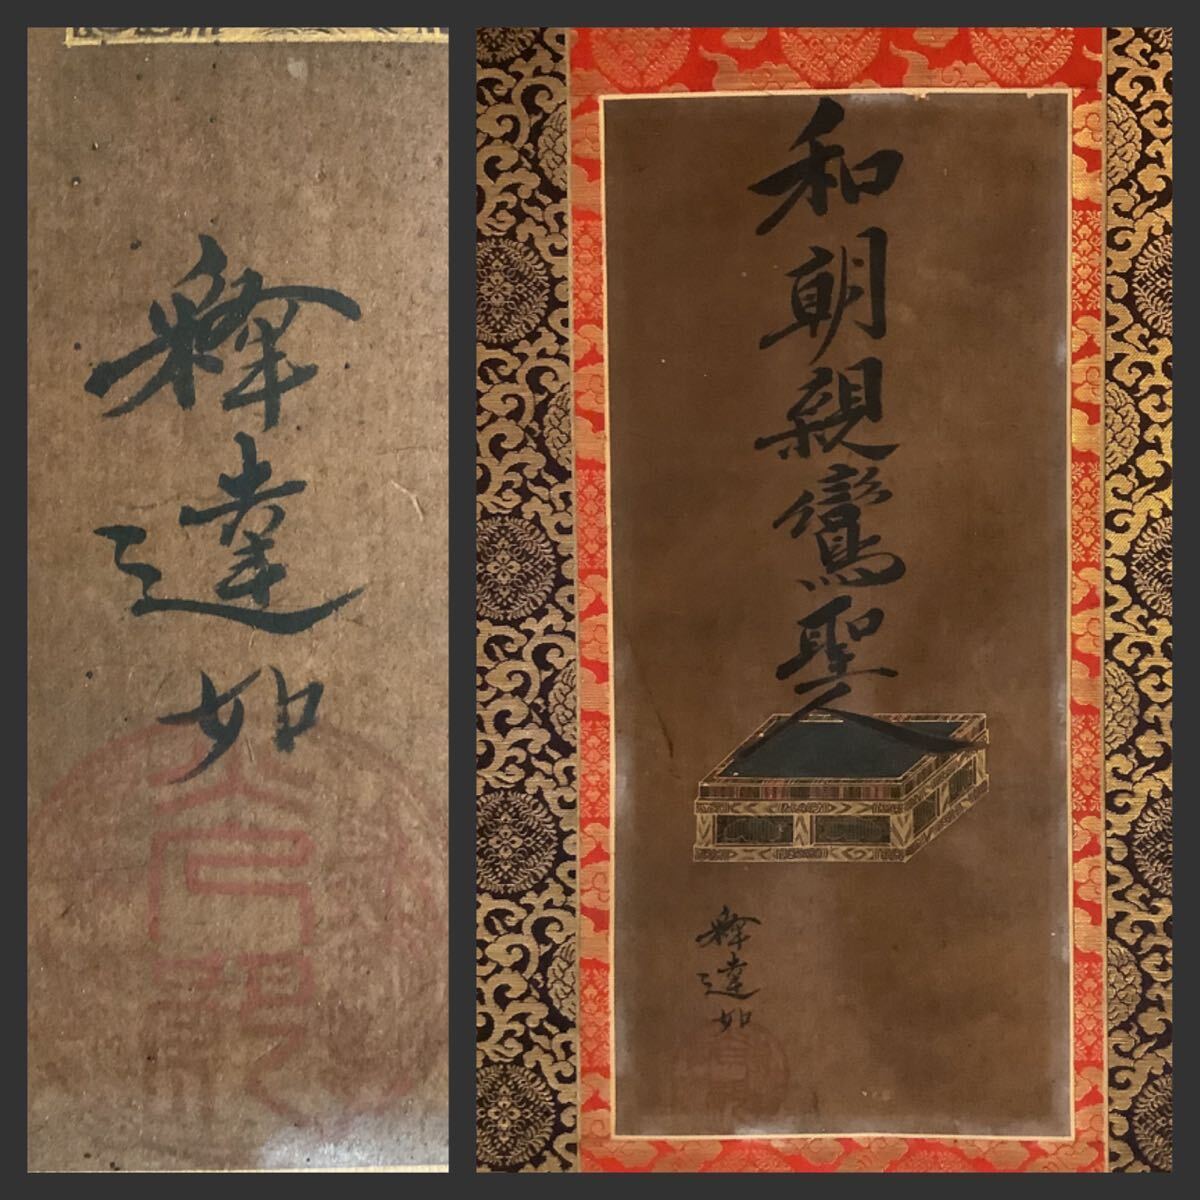 釋達如
和朝親鸞聖人
釋達如